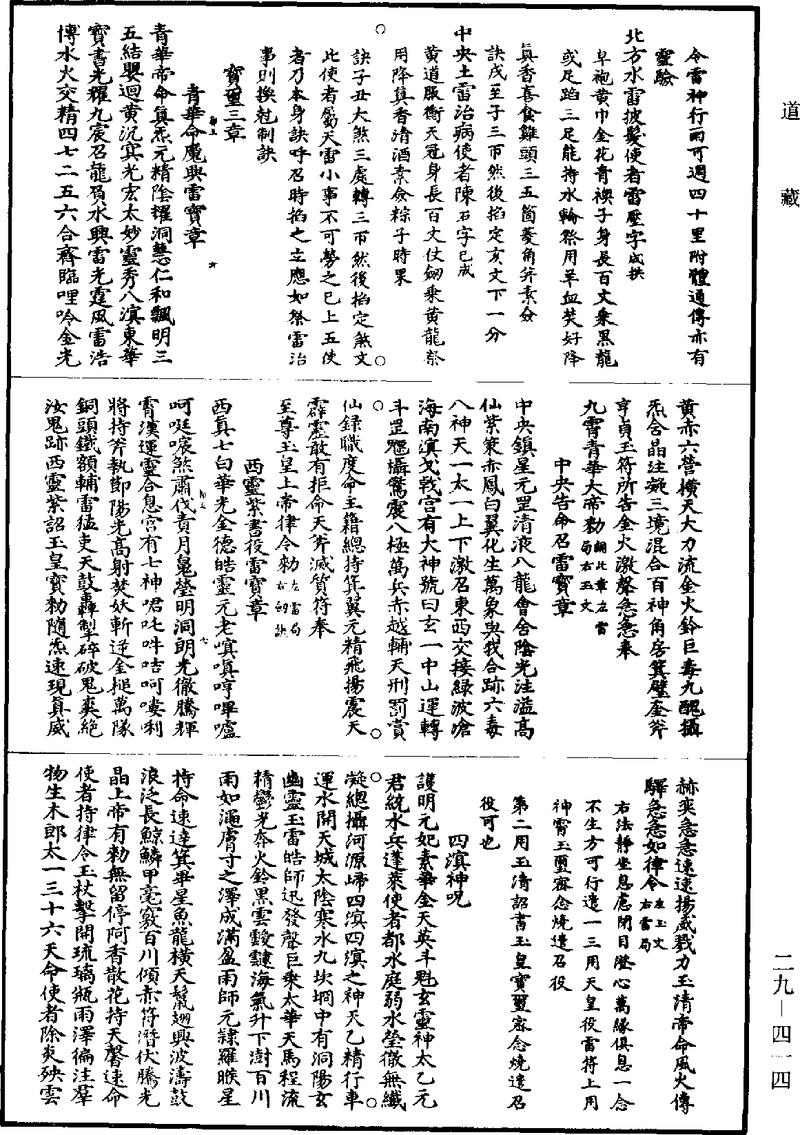 道藏
令雷神行雨可週四十里附體通傳亦有
靈驗
北方水雷披髮使者雷壓字成拱
皁袍黃巾金花青襖子身長百丈乘黑龍
或足蹈三足能持水輪祭用羊血英好降
真香喜食雞頭三五箇菱角笄素僉
訣戌至子三帀然後掐定亥文下一分
中央土雷治病使者陳石字已成
黃道服衝天冠身長百丈仗劒乘黃龍祭
用降真香清酒素僉粽子時果
訣子丑大煞三處轉三帀然後掐定煞文
此使者屬天雷小事不可勞之已上五使
者乃本身訣呼召時掐之立應如祭雷治
事則換起制訣
寶璽三章
青華命魔興雷寶章
青華帝命真炁元精陰耀洞慧仁和飄明三
五結嬰迴黃沉寞光宏太妙靈秀八溟東華
寶書光耀九宸召龍負水興雷光霆風雷浩
博水火交精四七二五六合齊臨哩唥金光
黃赤六營橫天大力流金火鈴巨毒九醜攝
炁含晶注凝三境混合百神角房箕壁奎斧
亨貞玉符所告金火激聲急急奉
九霄青華大帝勑 銅北章左雷局右玉文
中央告命召雷寶章
中央鎮星元罡清液八龍會舍陰光注溢高
仙紫策赤鳳白翼化生萬象與我合跡六毒
八神天一太一上下激召東西交接綠波滄
海南溟戈戟宮有大神號曰玄一中山運轉
斗罡魍攝驚震八極萬兵赤越輔天刑罰賞
仙録職度命玉籍總持箕翼元精飛揚震天
霹靂敢有拒命天斧滅質符奉
至尊玉皇上帝律令勑 左雷局右劒訣
西靈紫書役雷寶章
西真七白華光金德皓靈元老嗔嗔哼嗶嚧
呵唌喉煞肅伐責月毫瑩明洞朗光徹騰輝
霄漢運靈合息宮有七神啒吒吽咭呵嘍唎
將持斧執節陽光高射焚妖斬逆金槌萬隊
銅頭鐵額輔雷猛吏天鼓轟掣碎破鬼爽絶
汝鬼跡西靈紫詔玉皇寶勑隨炁速現真威
赫奕急急速速揚威戮力玉清帝命風火傳
驛急急如律令 左玉文右雷局
右法靜坐息慮閉目澄心萬緣俱息一念
不生方可行造一三用天皇役雷符上用
神霄玉璽密念燒造召役
第二用玉清詔書玉皇寶璽密念燒造召
役可也
四溟神呪
護明元妃素華金天英斗魁玄靈神太乙元
君統水兵蓬萊使者都水庭弱水瑩徹無纖
凝總攝河源㟓四溟四溟之神天乙精行車
運水開天城太陰寒水九坎堈中有洞陽玄
幽靈玉雷皓師迅發聲巨乘太華天馬程流
精鬱光奔火鈴黑雲靉靆海氣升下澍百川
雨如澠膚寸之澤成滿盈雨師元隷羅睺星
持命速達箕畢星魚龍橫天鬣翅興波濤鼓
浪泛長鯨鱗甲毫竅百川傾赤符潛伏騰光
晶上帝有勑無留停阿香散花持天馨速命
使者持律令玉杖擊開琉璃瓶雨澤徧注羣
物生木郎太一三十六天命使者除炎殃雲
二九—四一四